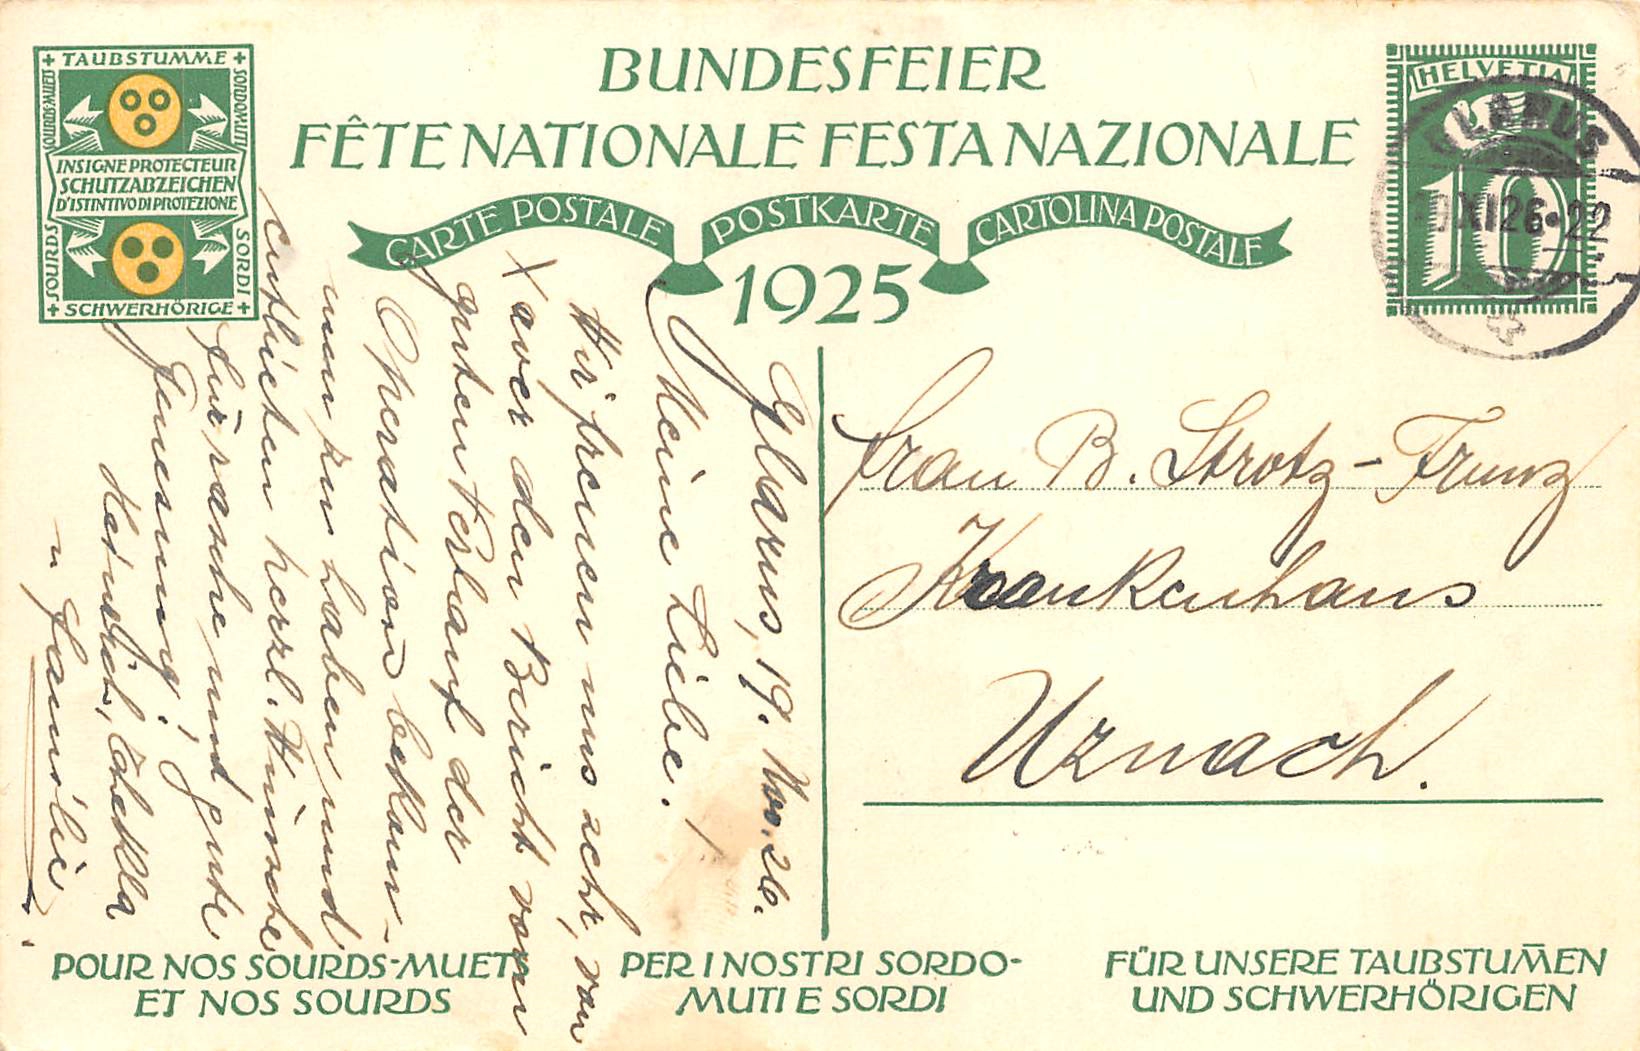 BUNDESFEIER
FÊTE NATIONALE FESTA NAZIONALE
CARTE POSTALE POSTKARTE CARTOLINA POSTALE
1925
+ TAUBSTUMME +
SOURDS-MUETS
SORDOMUTI
INSIGNE PROTECTEUR
SCHUTZABZEICHEN
D'ISTINTIVO DI PROTEZIONE
SOURDS
SORDI
+ SCHWERHÖRIGE +
HELVETIA
10
GLARUS
19 XI 26 - 22
Glarus, 19. Nov. 26.
Meine Liebe. !
Wir freuen uns sehr, von
Xaver den Bericht vom
guten Verlauf der
Operation bekom-
men zu haben und
entbieten herzl. Wünsche
für rasche und gute
Genesung!
Heinrich, Thekla
u familie
Frau B. Strotz-Frunz
Krankenhaus
Uznach.
POUR NOS SOURDS-MUETS
ET NOS SOURDS
PER I NOSTRI SORDO-
MUTI E SORDI
FÜR UNSERE TAUBSTUM̄EN
UND SCHWERHÖRIGEN